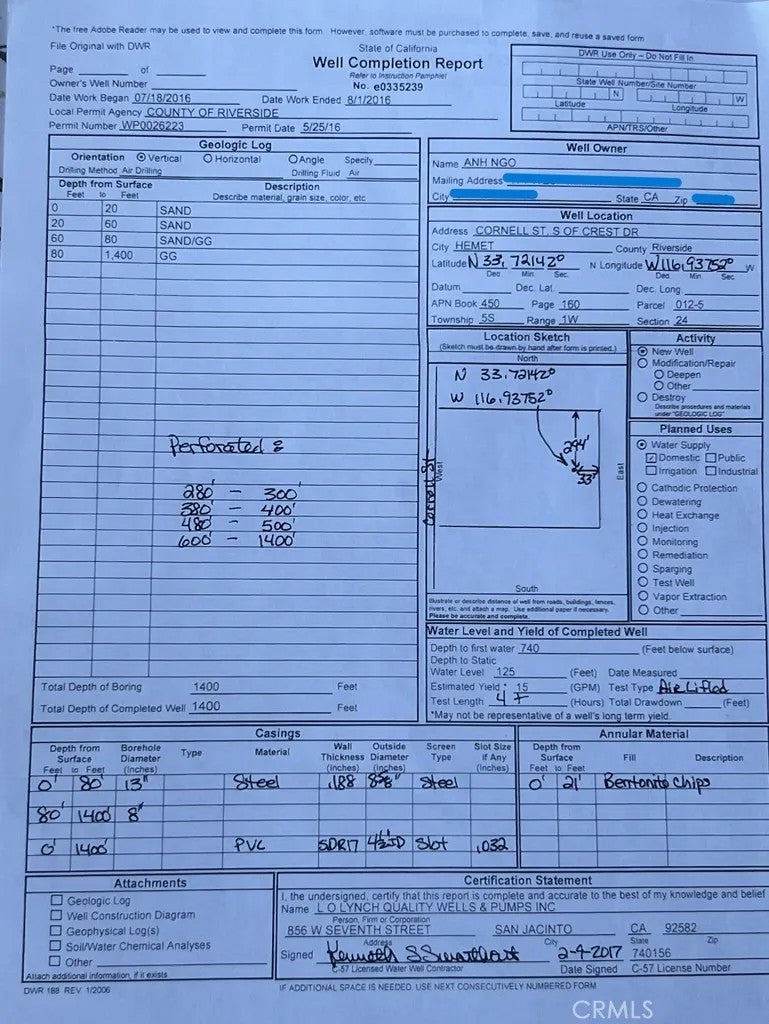 *The free Adobe Reader may be used to view and complete this form. However, software must be purchased to complete, save, and reuse a saved form
File Original with DWR
State of California
Well Completion Report
Refer to Instruction Pamphlet
No. e0335239
Page of
Owner's Well Number
Date Work Began 07/18/2016 Date Work Ended 8/1/2016
Local Permit Agency COUNTY OF RIVERSIDE
Permit Number WP0026223 Permit Date 5/25/16
DWR Use Only – Do Not Fill In
State Well Number/Site Number
N W
Latitude Longitude
APN/TRS/Other
Geologic Log
Orientation Vertical Horizontal Angle Specify
Drilling Method Air Drilling Drilling Fluid Air
Depth from Surface Description
Feet to Feet Describe material, grain size, color, etc
0 20 SAND
20 60 SAND
60 80 SAND/GG
80 1,400 GG
Perforated :
280' – 300'
380' – 400'
480' – 500'
600' – 1400'
Total Depth of Boring 1400 Feet
Total Depth of Completed Well 1400 Feet
Well Owner
Name ANH NGO
Mailing Address
City State CA Zip
Well Location
Address CORNELL ST, S OF CREST DR
City HEMET County Riverside
Latitude N 33.72142° N Longitude W116.93752° W
Deg. Min. Sec. Deg. Min. Sec.
Datum Dec. Lat. Dec. Long.
APN Book 450 Page 160 Parcel 012-5
Township 5S Range 1W Section 24
Location Sketch
(Sketch must be drawn by hand after form is printed.)
North
N 33.72142°
W 116.93752°
294'
33'
Cornell St
West
East
South
Illustrate or describe distance of well from roads, buildings, fences, rivers, etc. and attach a map. Use additional paper if necessary.
Please be accurate and complete.
Activity
New Well
Modification/Repair
Deepen
Other
Destroy
Describe procedures and materials under "GEOLOGIC LOG"
Planned Uses
Water Supply
Domestic Public
Irrigation Industrial
Cathodic Protection
Dewatering
Heat Exchange
Injection
Monitoring
Remediation
Sparging
Test Well
Vapor Extraction
Other
Water Level and Yield of Completed Well
Depth to first water 740 (Feet below surface)
Depth to Static
Water Level 125 (Feet) Date Measured
Estimated Yield * 15 (GPM) Test Type Air Lifted
Test Length 4 + (Hours) Total Drawdown (Feet)
*May not be representative of a well's long term yield.
Casings
Depth from Surface Feet to Feet Borehole Diameter (Inches) Type Material Wall Thickness (Inches) Outside Diameter (Inches) Screen Type Slot Size if Any (Inches)
0' 80' 13" Steel .188 8⅝" Steel
80' 1400' 8"
0' 1400' PVC SDR17 4½ID Slot .032
Annular Material
Depth from Surface Feet to Feet Fill Description
0' 21' Bentonite Chips
Attachments
Geologic Log
Well Construction Diagram
Geophysical Log(s)
Soil/Water Chemical Analyses
Other
Attach additional information, if it exists.
Certification Statement
I, the undersigned, certify that this report is complete and accurate to the best of my knowledge and belief
Name L O LYNCH QUALITY WELLS & PUMPS INC
Person, Firm or Corporation
856 W SEVENTH STREET SAN JACINTO CA 92582
Address City State Zip
Signed Kenneth S Swarthout 2-4-2017 740156
C-57 Licensed Water Well Contractor Date Signed C-57 License Number
DWR 188 REV. 1/2006
IF ADDITIONAL SPACE IS NEEDED, USE NEXT CONSECUTIVELY NUMBERED FORM
CRMLS